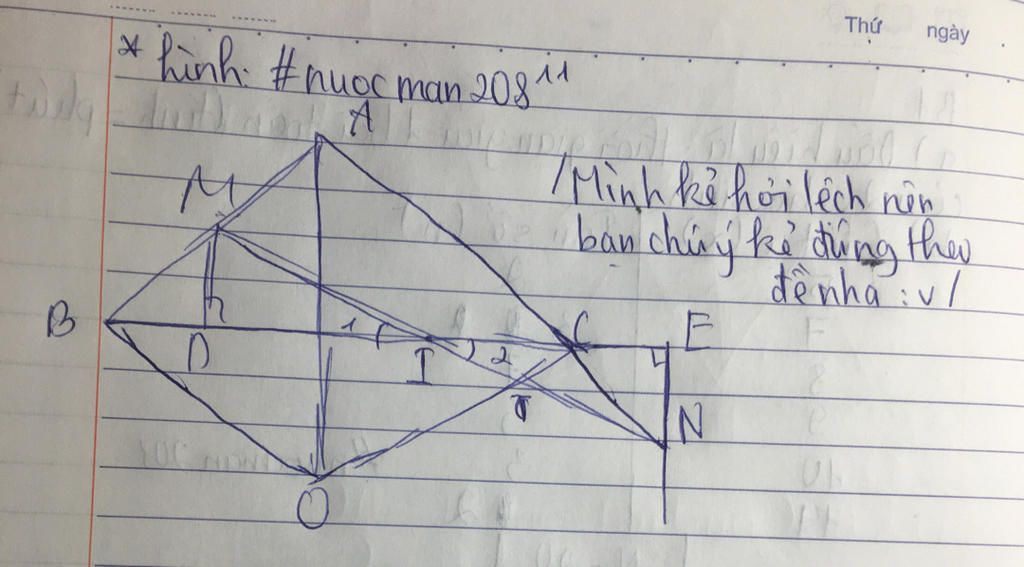 Thứ ngày
* hình: #nuocman208¹¹
A
M
/Mình kẻ hơi lệch nên
bạn chú ý kẻ đúng theo
đề nha :v/
B
D
1
I
2
C
E
N
O